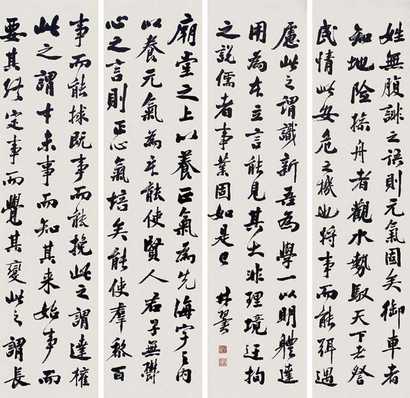 廟堂之上以養正氣為先海宇之內
以養元氣為本能使賢人君子無鬱
心之言則正氣培矣能使羣黎百
姓無腹誹之語則元氣固矣御車者
知地險操舟者觀水勢馭天下者詧
民情此安危之機也將事而能弭遇
事而能救既事而能挽此之謂達權
此之謂才未事而知其來始事而
要其終定事而覺其變此之謂長
慮此之謂識新吾為學一以明體達
用為本立言能見其大非理境迂拘
之說儒者事業固如是已 林翼